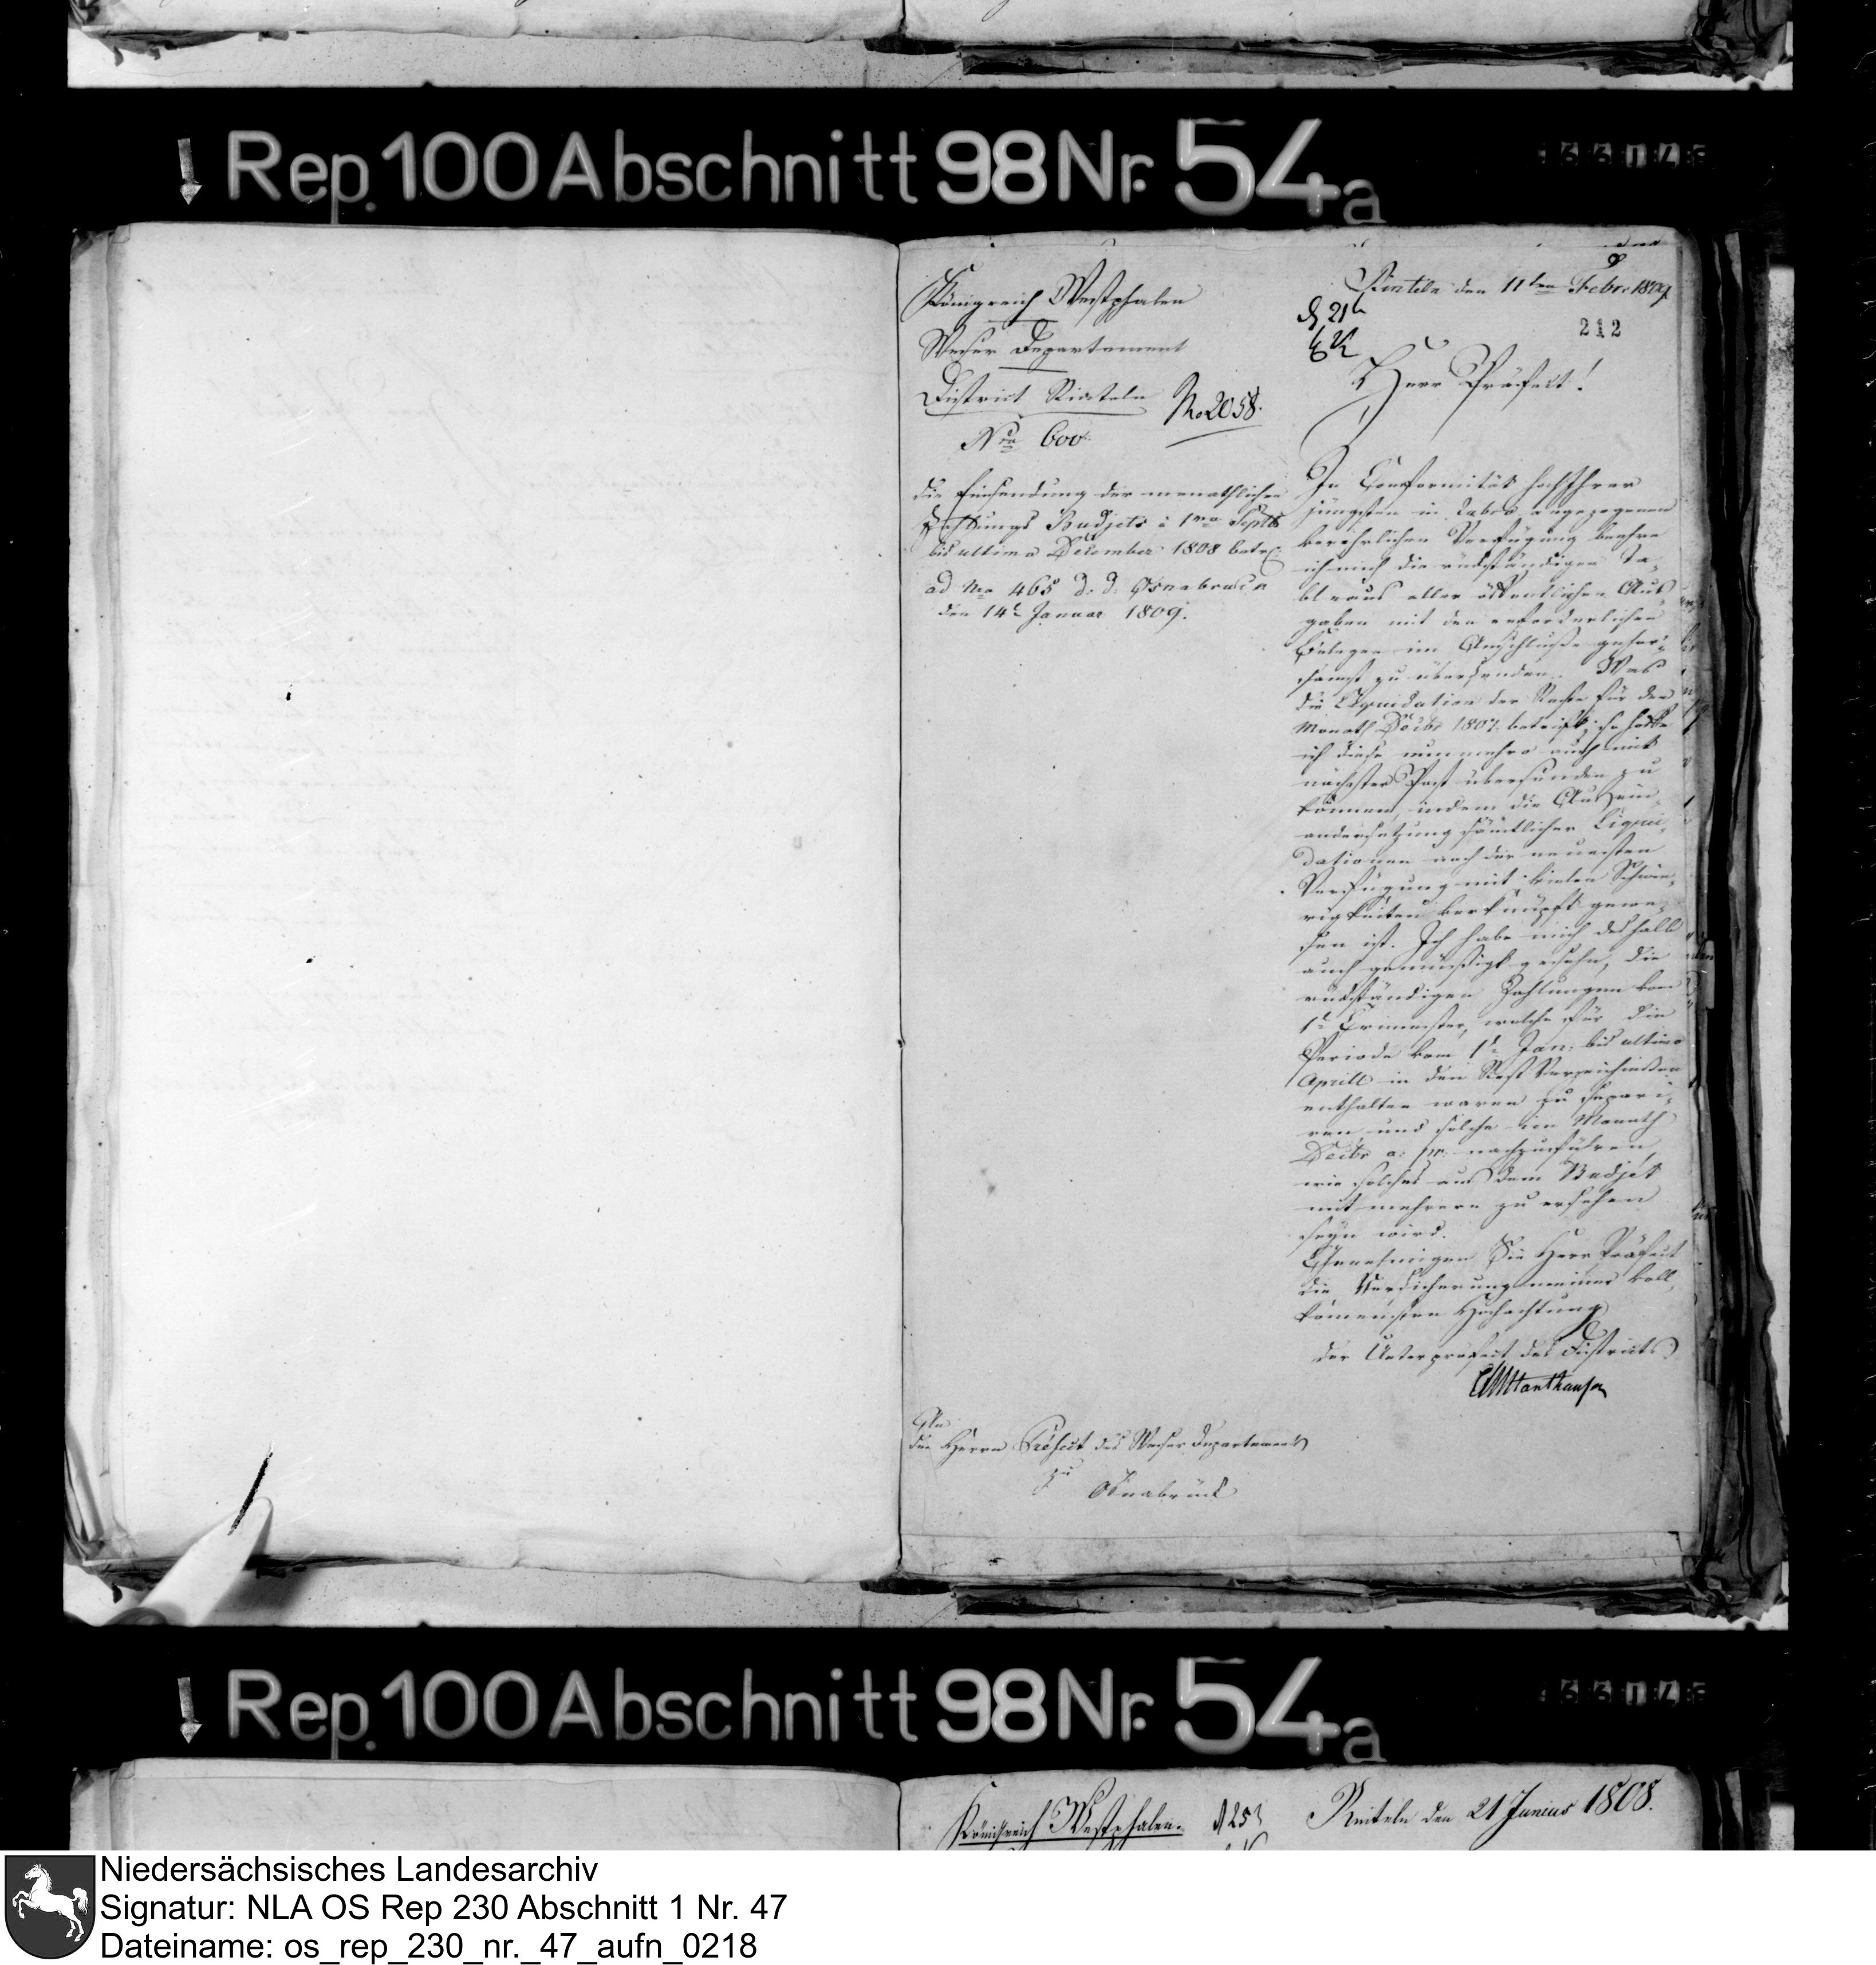 Rep. 100 Abschnitt 98 Nr. 54a
Königreich Westphalen
Weser Departement
District Rinteln
No 2058.
Nro 600.
die Einsendung der monathlichen
Zahlungs Budjets à 1mo Septb
bis ultimo December 1808 betr.
ad Nro 465 d. d. Osnabrück
den 14t Januar 1809.
Rinteln den 11ten Febr. 1809
212
Herr Präfect!
In Conformität hochIhrer
jüngsten in rubro angezogenen
verehrlichen Verfügung beehre
ich mich die rückständigen Ta-
bleaus aller öffentlichen Aus-
gaben mit den erforderlichen
Belegen im Anschluße gehor-
samst zu übersenden. Was
die Liquidation der Reste für den
Monath Decbr 1807 betrift, so hoffe
ich diese nunmehro auch mit
nächster Post übersenden zu
können, indem die Ausein-
andersetzung sämtlicher Liqui-
dationen nach der neuesten
Verfügung mit vielen Schwie-
rigkeiten verknüpft gewe-
sen ist. Ich habe mich deshalb
auch gemüßigt gesehn, die
rückständigen Zahlungen vom
1t Trimester, welche für die
Periode vom 1t Jan. bis ultimo
Aprill in den Rest Verzeichnißen
enthalten waren zu separi-
ren und solche im Monath
Decbr a. pr. nachzuführen,
wie solches aus dem Budjet
mit mehrern zu ersehen
seyn wird.
Genehmigen Sie Herr Präfect
die Versicherung meiner voll-
komensten Hochachtung
der Unterpräfect des Districts
An
den Herrn Präfect des Weser Departements
zu
Osnabrück
Rep. 100 Abschnitt 98 Nr. 54a
Königreich Westphalen.
Rinteln den 21 Junius 1808.
Niedersächsisches Landesarchiv
Signatur: NLA OS Rep 230 Abschnitt 1 Nr. 47
Dateiname: os_rep_230_nr._47_aufn_0218